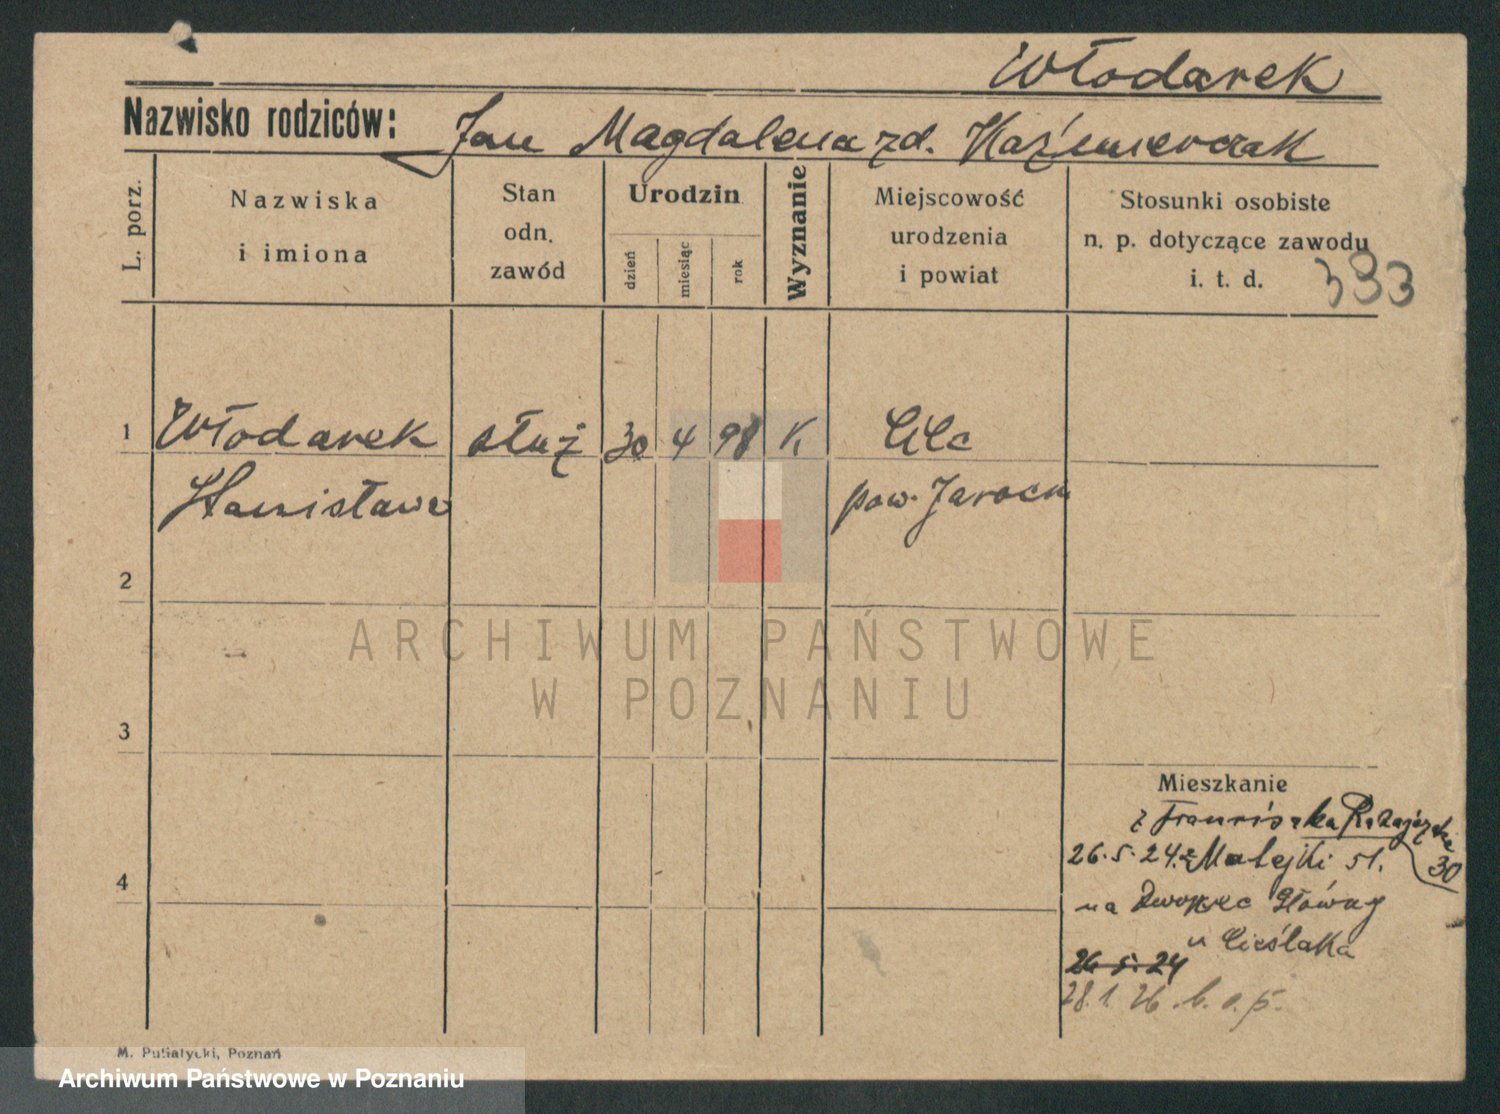 Włodarek
Nazwisko rodziców: Jan Magdalena zd. Kaźmierczak
L. porz.
Nazwiska
i imiona
Stan
odn.
zawód
Urodzin
dzień
miesiąc
rok
Wyznanie
Miejscowość
urodzenia
i powiat
Stosunki osobiste
n. p. dotyczące zawodu
i. t. d.
393
1 Włodarek służ 30 4 98 K.
Stanisława pow. Jarocin
2
ARCHIWUM PAŃSTWOWE
W POZNANIU
3
Mieszkanie
z Franciszka Ratajczaka
30
26.5.24 z Matejki 51.
4
na Dworzec Główny
u Cieślaka
26.5.24
28.1.26.
M. Putiatycki, Poznań
Archiwum Państwowe w Poznaniu